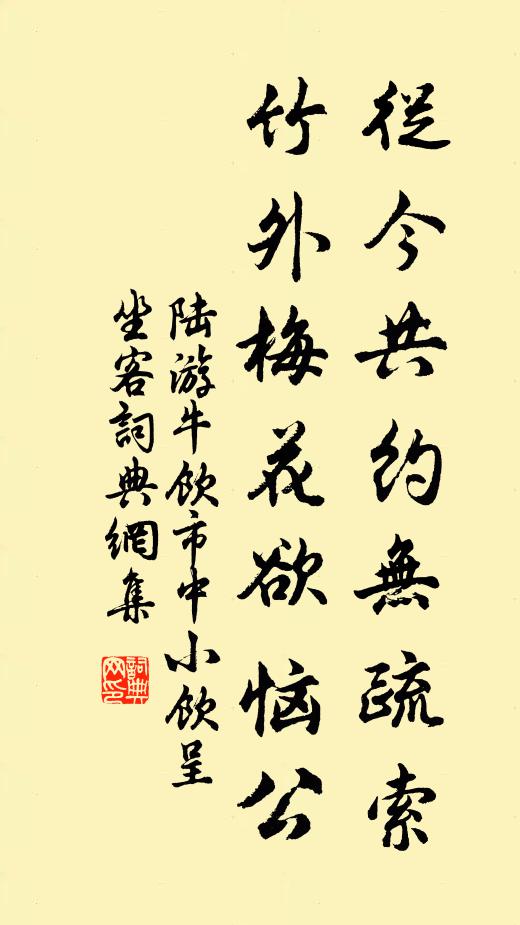 從今共約無疏索
竹外梅花欲恼公
陆游牛飲市中小飲呈
坐客詞典網集
詞典网印